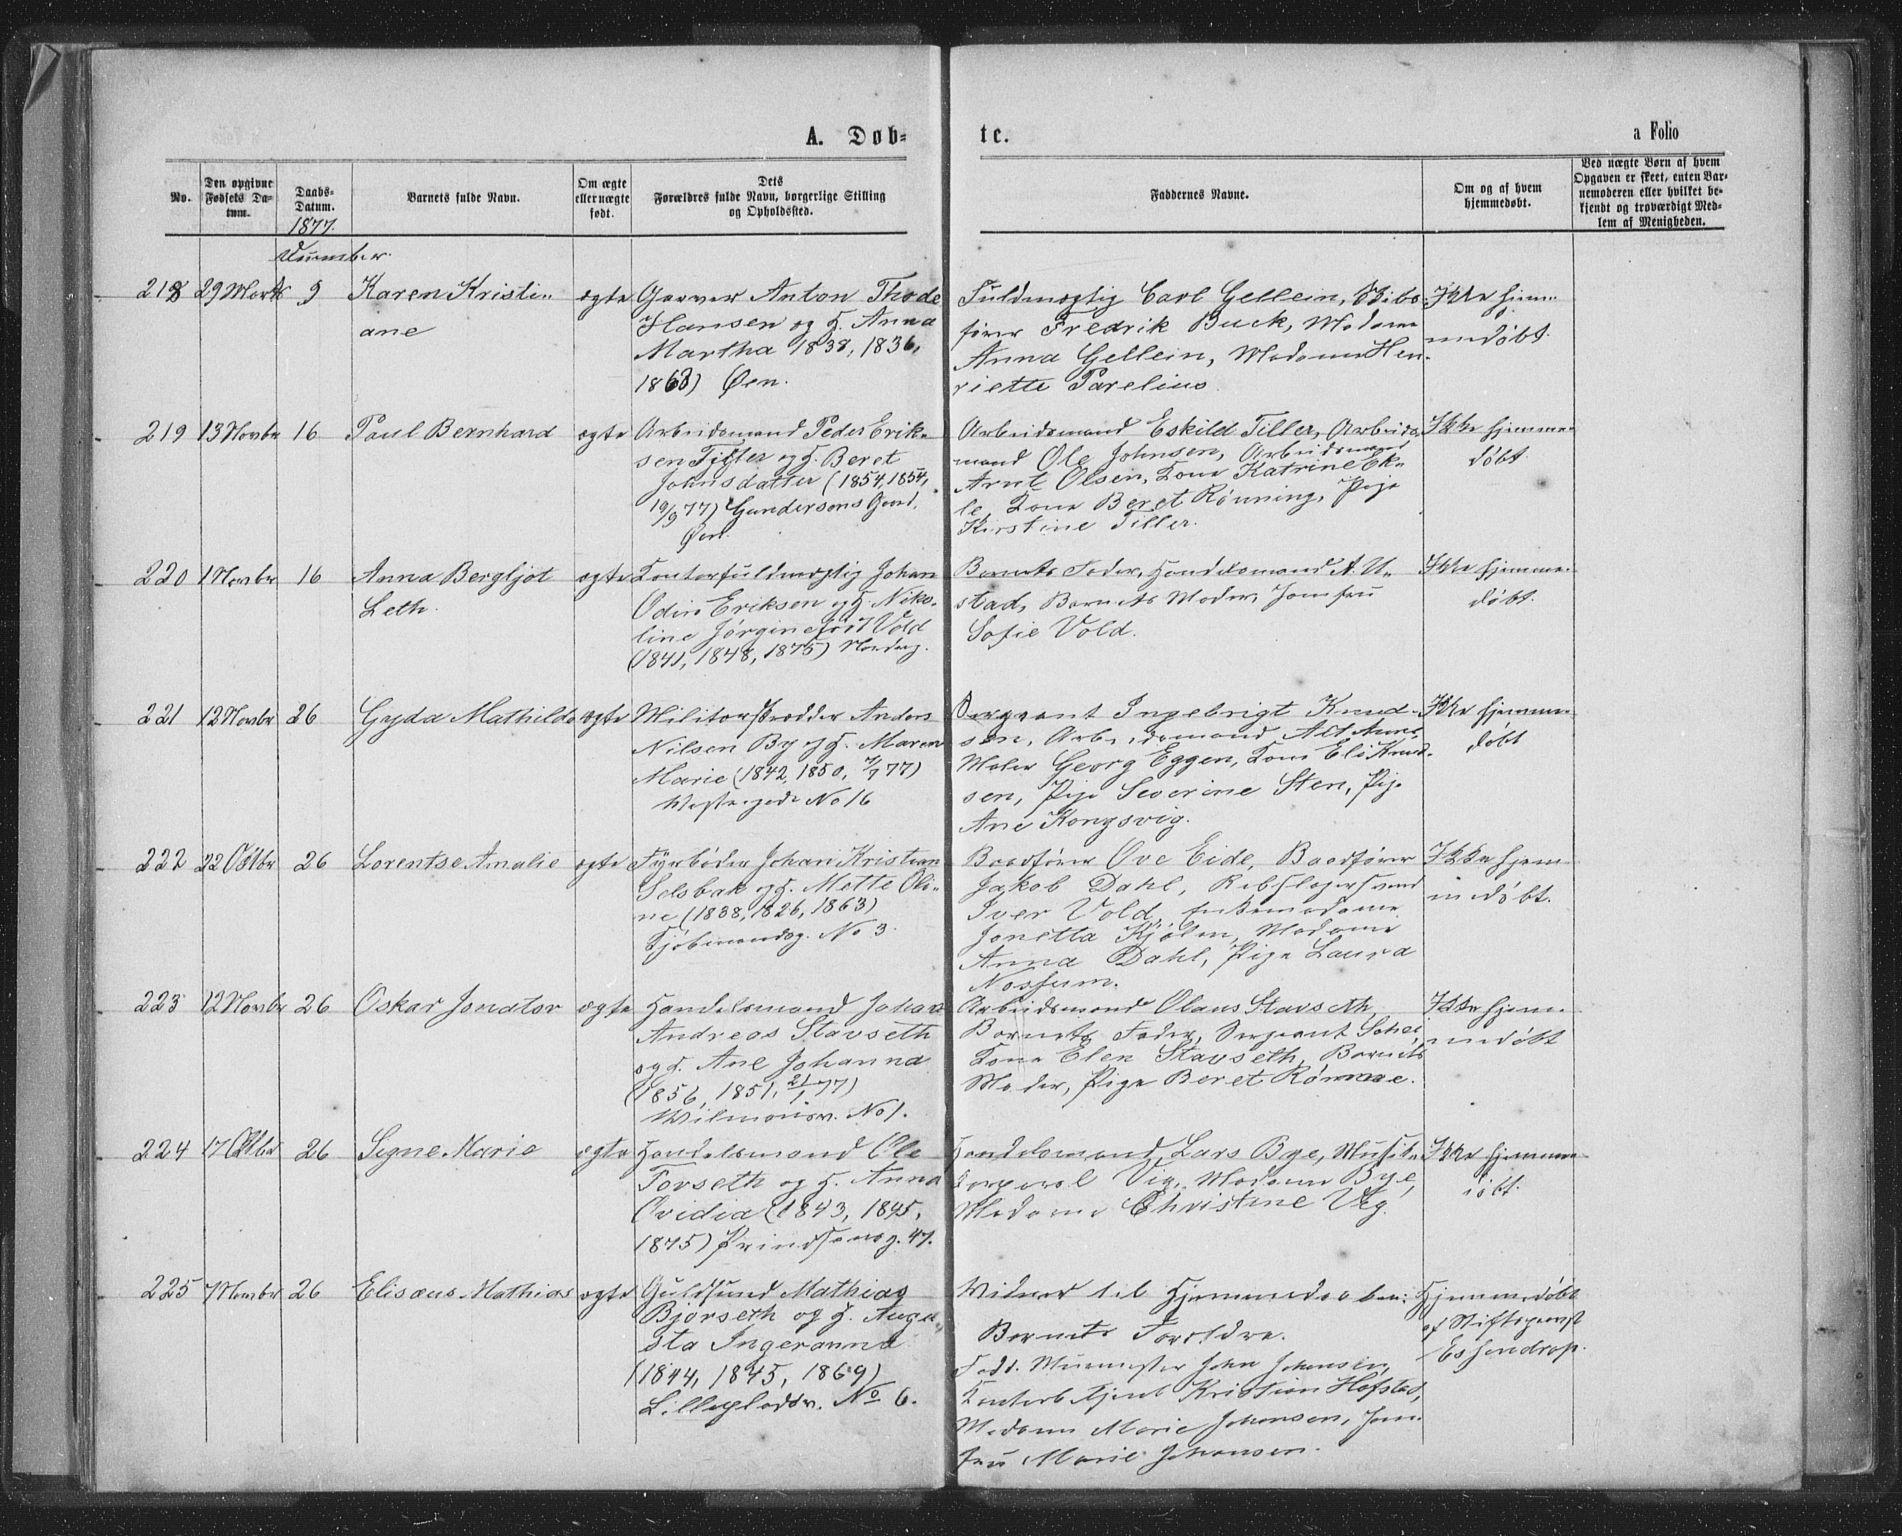 A. Døb=
te.
a Folio
No.
Den opgivne
Fødsels Da=
tum.
Daabs=
Datum.
1877.
Barnets fulde Navn.
Om ægte
eller uægte
født.
Dets
Forældres fulde Navn, borgerlige Stilling
og Opholdssted.
Faddernes Navne.
Om og af hvem
hjemmedøbt.
Ved uægte Børn af hvem
Opgaven er skeet, enten Bar=
nemoderen eller hvilket be=
kjendt og troværdigt Med=
lem af Menigheden.
218 29 Marts 9 Karen Kristi=
ane
ægte Garver Anton Thode
Hansen og H. Anna
Martha 1838, 1836,
1863) Øen.
Fuldmægtig Carl Gellein, Skibs
fører Fredrik Buck, Madame
Anna Gellein, Madame Hen-
riette Parelius
Ikke hjem=
medøbt.
219 13 Novbr 16 Paul Bernhard
ægte Arbeidsmand Peder Erik=
sen Tiller og H. Beret
Johnsdatter (1854, 1854,
19/9 77) Gundersens Gaard,
Øen.
Arbeidsmand Eskild Tiller, Arbeids=
mand Ole Johnsen, Arbeidsmand
Arnt Olsen, Kone Katrine Ek=
le, Kone Beret Rønning, Pige
Kirstine Tiller.
Ikke hjemme=
døbt.
220 1 Novbr 16 Anna Bergljot
Leth.
ægte Kontorfuldmægtig Johan
Odin Eriksen og H. Niko=
line Jørgine født Vold
(1841, 1848, 1875)
Barnets Fader, Handelsmand A. U=
stad, Barnets Moder, Jomfru
Sofie Vold.
Ikke hjemme=
døbt.
221 12 Novbr 26 Gyda Mathilde
ægte Militærskrædder Anders
Nilsen By og H. Maren
Marie (1842, 1850, 77)
No 16
Sergeant Ingebrigt Knud=
sen, Arbeidsmand
Maler Georg Eggen, Kone Eli Knud=
sen, Pige Severine Sten, Pige
Ane Kongsvig.
Ikke hjemme=
døbt
222 22 Oktbr 26 Lorentse Amalie
ægte Fyrbøder Johan Kristian
Selsbak og H. Mette Oli=
ne (1838, 1826, 1863)
Kjøbmandsg. No 3.
Baadfører Ove Eide, Baadfører
Jakob Dahl, Rebslagersvend
Iver Vold, Enkemadame
Jonetta Kjølen, Madame
Anna Dahl, Pige Laura
Nossum.
Ikke hjem=
medøbt.
223 12 Novbr 26 Oskar Jonator
ægte Handelsmand Johan
Andreas Stavseth
og H. Ane Johanna
(1856, 1851, 21/1 77)
No 1.
Arbeidsmand Olaus Stavseth,
Barnets Fader, Sergeant
Kone Elen Stavseth, Barnets
Moder, Pige Beret
Ikke hjem=
medøbt
224 17 Oktbr 26 Signe Marie
ægte Handelsmand Ole
Forseth og H. Anna
Ovidia (1843, 1845,
1875) Prindsensg. 47.
Handelsmand Lars Bye, Musik=
korporal Vig, Madame Bye,
Madame Christine Vig.
Ikke hjemme=
døbt.
225 7 Novbr 26 Elisæus Mathias
ægte Guldsmed Mathias
Bjørseth og H. Augu=
sta Ingeranna
(1844, 1845, 1869)
No 6.
Vidner til Hjemmedaaben:
Barnets Forældre.
Fadd. Murmester John Johansen,
Kontorbetjent Kristian Hofstad,
Madame Marie Johansen, Jom=
fru Marie Johansen.
Hjemmedøbt
af Stiftsprovst
Essendrop.